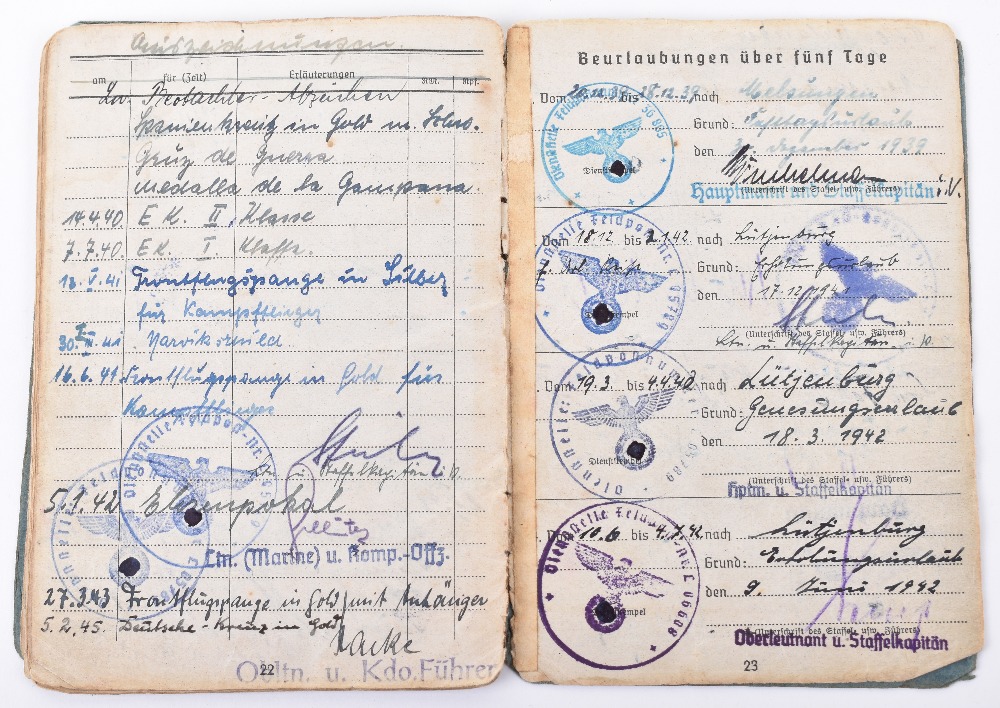 Auszeichnungen.
am für (Zeit) Erläuterungen RM. Rpf.
Lw. Beobachter-Abzeichen
Spanienkreuz in Gold m. Schw.
Cruz de Guerra
Medalla de la Campana.
14.4.40. E.K. II. Klasse
7.7.40. E.K. I. Klasse.
18.V.41 Frontflugspange in Silber
für Kampfflieger
Narvikschild.
16.6.41 Frontflugspange in Gold für
Kampfflieger
Ltn. u. Staffelkapitän i.V.
5.1.42 Ehrenpokal
Ltn. (Marine) u. Komp.-Offz.
27.3.43 Frontflugspange in Gold mit Anhänger
5.2.45. Deutsche-Kreuz in Gold
Obltn. u. Kdo.Führer
22
Beurlaubungen über fünf Tage
Vom 20.12.39 bis nach Melsungen
Grund: Festtagsurlaub
den Dezember 1939
Dienststempel
(Unterschrift des Staffel- usw. Führers) i.V.
Hauptmann und Staffelkapitän
Dienststelle Feldpost
Vom 18.12 bis 2.1.42 nach Lütjenburg
Grund: Erholungsurlaub
den 17.12.1941
(Unterschrift des Staffel- usw. Führers)
Ltn. u. Staffelkapitän i.V.
Dienststelle Feldpost-Nr.
Vom 19.3. bis 4.4.42 nach Lütjenburg
Grund: Genesungsurlaub
den 18.3.1942
Dienststempel
(Unterschrift des Staffel- usw. Führers)
Hptm. u. Staffelkapitän
Vom 10.6 bis 4.7.42 nach Lütjenburg
Grund: Erholungsurlaub
den 9. Juni 1942
Dienststelle Feldpost
(Unterschrift des Staffel- usw. Führers)
Oberleutnant u. Staffelkapitän
23